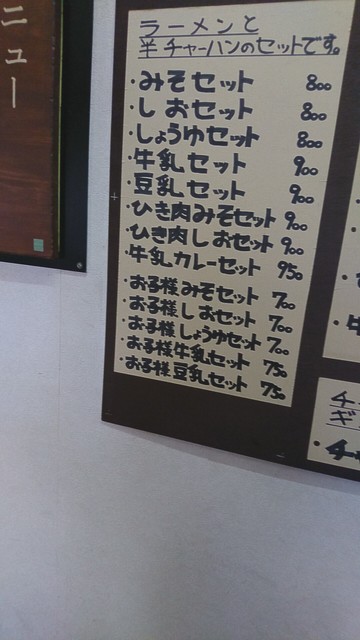 ニュー
ラーメンと
半チャーハンのセットです。
・みそセット 800
・しおセット 800
・しょうゆセット 800
・牛乳セット 900
・豆乳セット 900
・ひき肉みそセット 900
・ひき肉しおセット 900
・牛乳カレーセット 950
・お子様みそセット 700
・お子様しおセット 700
・お子様しょうゆセット 700
・お子様牛乳セット 750
・お子様豆乳セット 750
チ
ギ